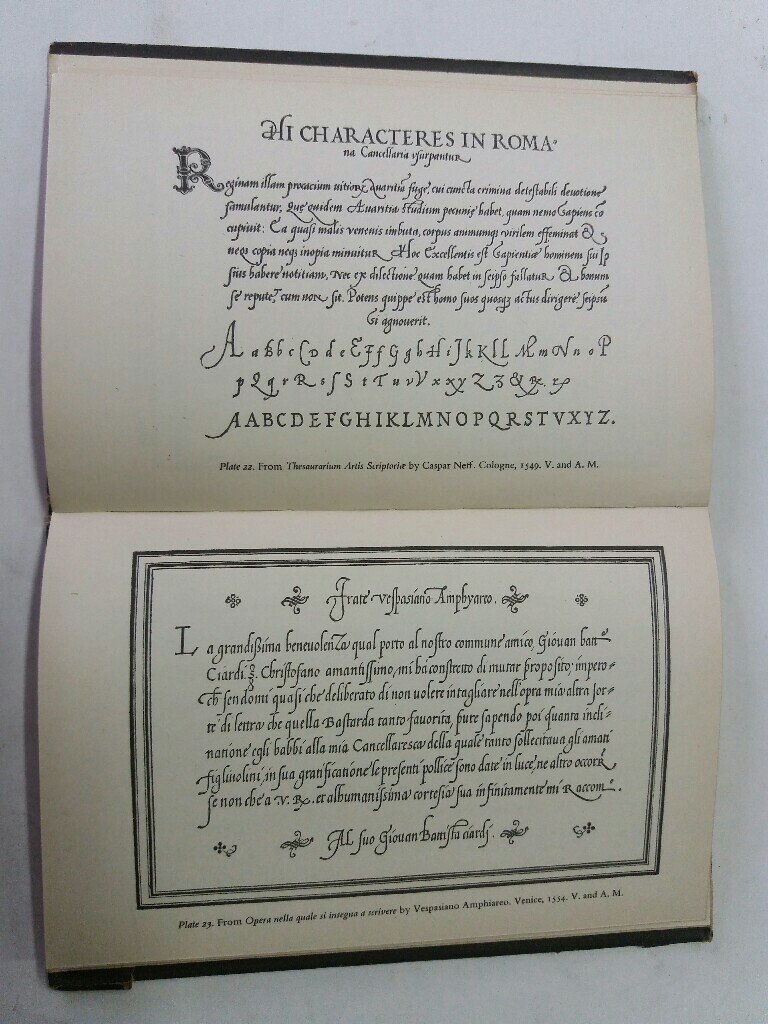 HI CHARACTERES IN ROMA=
na Cancellaria vsurpantur
Reginam illam procacium uitiorꝝ Auaritiā fuge, cui cuncta crimina detestabili deuotione
famulantur. Quę quidem Auaritia studium pecunię habet, quam nemo sapiens cō
cupiuit: Ea quasi malis venenis imbuta, corpus animumqꝫ virilem effeminat &
neqꝫ copia neqꝫ inopia minuitur. Hoc Excellentis est Sapientiæ hominem sui Ip
sius habere notitiam, Nec ex dilectione quam habet in seipso fallatur & bonum
se reputet, cum non sit. Potens quippe est homo suos quosqꝫ actus dirigere, seipsū
Si agnouerit.
A a B b c C D d e E F f G g b H i J k K l L M m N n o P
p Q q r R s ſ S t T u v V x x y Z 3 & ℞. rp
AABCDEFGHIKLMNOPQRSTVXYZ.
Plate 22. From Thesaurarium Artis Scriptoriæ by Caspar Neff. Cologne, 1549. V. and A. M.
Frate Vespasiano Amphyareo.
La grandißima beneuolenza qual porto al nostro commune amico, Giouan batt
Ciardi Christofano amantissimo, mi ha constretto di mutar proposito; impero=
ch' sendomi quasi che deliberato di non uolere intagliare nell'opra mia altra sor=
te di lettra che quella Bastarda tanto fauorita, pure sapendo poi quanta incli=
natione egli habbi alla mia Cancellaresca della quale tanto sollecitaua gli amati
figliuolini, in sua gratificatione le presenti pollice sono date in luce, ne altro occorre
se non che a V. R. et alhumanissima cortesia sua infinitamente mi Raccom.
Al suo Giouan Battista ciardi.
Plate 23. From Opera nella quale si insegna a scrivere by Vespasiano Amphiareo. Venice, 1554. V. and A. M.